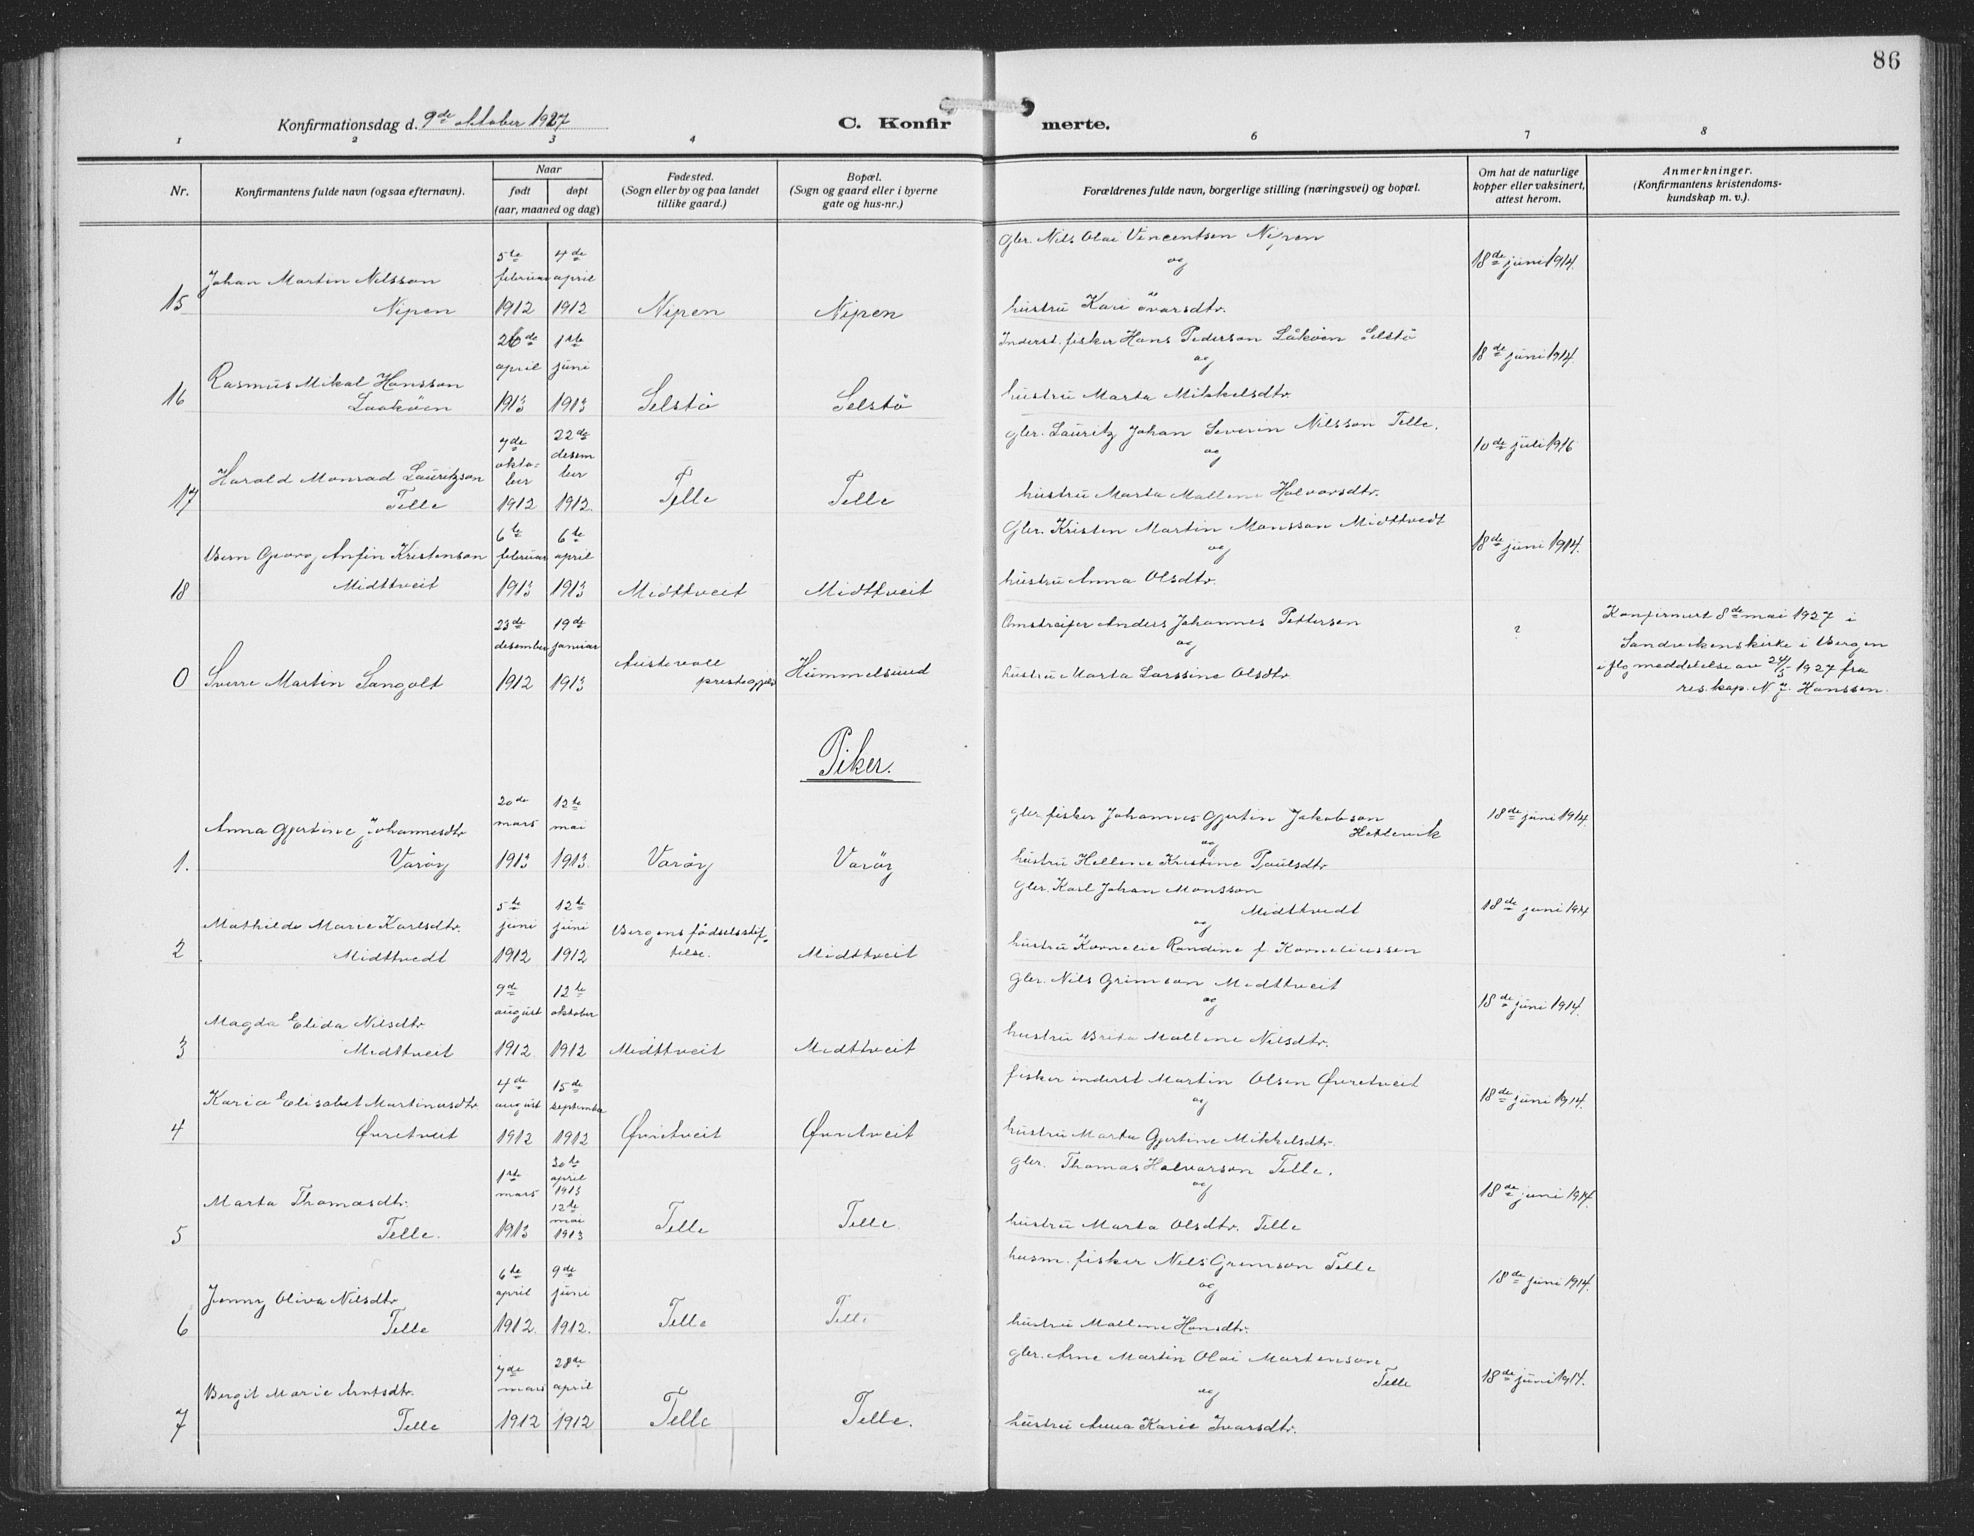 86
Konfirmationsdag d. 9de oktober 1927
C. Konfir merte.
1 2 3 4 6 7 8
Nr.
Konfirmantens fulde navn (ogsaa efternavn).
Naar
født døpt
(aar, maaned og dag)
Fødested.
(Sogn eller by og paa landet
tillike gaard.)
Bopæl.
(Sogn og gaard eller i byerne
gate og hus-nr.)
Forældrenes fulde navn, borgerlige stilling (næringsvei) og bopæl.
Om hat de naturlige
kopper eller vaksinert,
attest herom.
Anmerkninger.
(Konfirmantens kristendoms-
kundskap m. v.).
15 Johan Martin Nilsson
Nipen
5te februar 1912
4de april 1912
Nipen
Nipen
Gbr. Nils Olai Vincentsen Nipen
og
hustru Kari Ivarsdtr.
18de juni 1914.
16 Rasmus Mikal Hansson
Laakøen
26de april 1913
1ste juni 1913
Selstø
Selstø
Inderst. fisker Hans Pederson Låkøen Selstø
og
hustru Marta Mikkelsdtr.
18de juni 1914.
17 Harald Monrad Lauritzson
Telle
7de oktober 1912
22de desember 1912.
Telle
Telle
gbr. Lauritz Johan Severin Nilsson Telle.
og
hustru Marta Mallene Halvorsdtr.
10de juli 1916
18 Bern Georg Anfin Kristenson
Midttveit
6te februar 1913
6te april 1913
Midttveit
Midttveit
Gbr. Kristen Martin Monsson Midttvedt
og
hustru Anna Olsdtr.
18de juni 1914.
0 Sverre Martin Sangolt
23de desember 1912
19de januar 1913
Austevoll
prestegjeld
Hummelsund
Omstreifer Anders Johannes Pettersen
og
hustru Marta Larssine Olsdtr.
?
Konfirmert 8de mai 1927 i
Sandvikenskirke i Bergen
iflg meddelelse av 24/5 1927 fra
res. kap. N. J. Hanssen.
Piker.
1. Anna Gjertine Johannesdtr
Varøy
20de mars 1913
12te mai 1913.
Varøy
Varøy
gbr. fisker Johannes Gjertin Jakobson
Hettevik
og
hustru Hellene Kristine Paulsdtr
18de juni 1914.
2 Mathilde Marie Karlsdtr.
Midttvedt
5te juni 1912
12te juni 1912
Bergens fødselsstif-
telse.
Midttveit
Gbr. Karl Johan Monsson
Midttvedt
og
hustru Kornelie Randine f. Korneliussen
18de juni 1914
3 Magda Elida Nilsdtr
Midttveit
9de august 1912
12te oktober 1912
Midttveit
Midttveit
gbr. Nils Grimson Midttveit
og
hustru Brita Mallene Nilsdtr.
18de juni 1914.
4 Karia Elisabet Martinusdtr
Øvretveit
4de august 1912
15de september 1912
Øvretveit
Øvretveit
fisker inderst Martin Olsen Øvretveit
og
hustru Marta Gjertine Mikkelsdtr.
18de juni 1914.
5 Marta Thomasdtr.
Telle.
1ste mars 1913
20te april 1913
12te mai 1913
Telle
Telle.
gbr. Thomas Halvorson Telle.
og
hustru Marta Olsdtr. Telle
18de juni 1914.
6 Jenny Oliva Nilsdtr
Telle
6te april 1912.
9de juni 1912.
Telle
Telle
husm. fisker Nils Grimson Telle
og
hustru Mallene Hansdtr.
18de juni 1914.
7 Bergit Marie Arntsdtr.
Telle
7de mars 1912
28de april 1912
Telle
Telle.
gbr. Arne Martin Olai Martenson
Telle
og
hustru Anna Karie Ivarsdtr.
18de juni 1914.